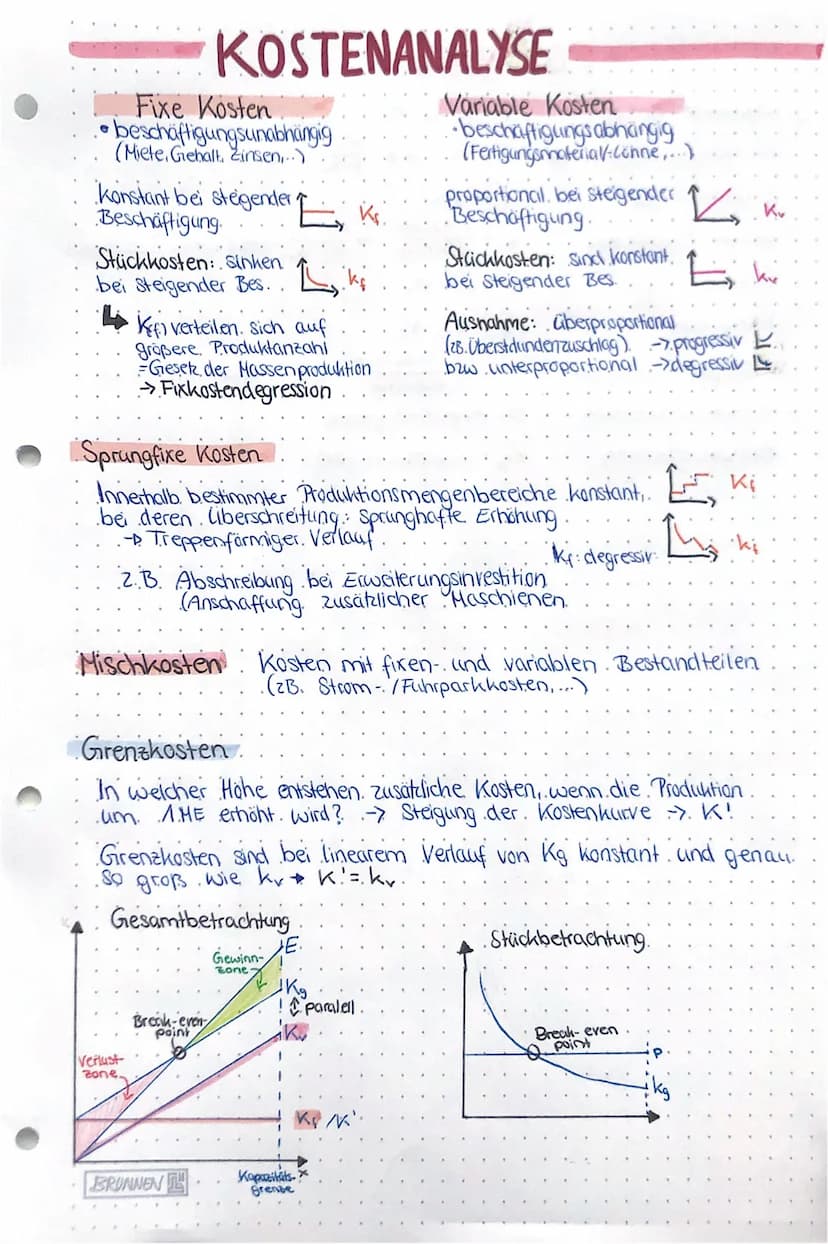 KOSTENANALYSE
Fixe Kosten
• beschäftigungsunabhängig
(Miete, Gehalt, Zinsen,..)
konstant bei steigender
Beschäftigung.
Kf
Stückkosten: sinken
bei steigender Bes.
kf
↳ K(f) verteilen sich auf
größere Produktanzahl
=Gesetz der Massenproduktion
→ Fixkostendegression
Variable Kosten
• beschäftigungsabhängig
(Fertigungsmaterial/-Löhne,...)
proportional bei steigender
Beschäftigung.
Kv
Stückkosten: sind konstant
bei steigender Bes.
kv
Ausnahme: überproportional
(zB. Überstdundenzuschlag) → progressiv
bzw. unterproportional → degressiv
Sprungfixe Kosten
Innerhalb bestimmter Produktionsmengenbereiche konstant,
bei deren Überschreitung: Sprunghafte Erhöhung
→ Treppenförmiger Verlauf
Kf
kf: degressiv
kf
z.B. Abschreibung bei Erweiterungsinvestition
(Anschaffung zusätzlicher Maschienen
Mischkosten Kosten mit fixen- und variablen Bestandteilen
(zB. Strom-/Fuhrparkkosten,...)
Grenzkosten
In welcher Höhe entstehen zusätzliche Kosten, wenn die Produktion
um 1ME erhöht wird? → Steigung der Kostenkurve → K'
Grenzkosten sind bei linearem Verlauf von Kg konstant und genau
so groß wie kv → K' = kv
Gesamtbetrachtung
E
Gewinn-
zone
Kg
⇕ paralell
Kv
Break-even-
point
Verlust-
zone
Kf /K'
x
Kapazitäts-
grenze
BRUNNEN
Stückbetrachtung
Break-even
point
P
kg